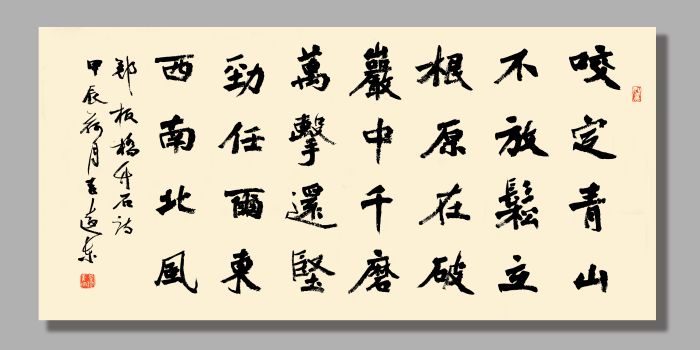 咬定青山
不放鬆立
根原在破
巖中千磨
萬擊還堅
勁任爾東
西南北風
鄭板橋竹石詩
甲辰荷月